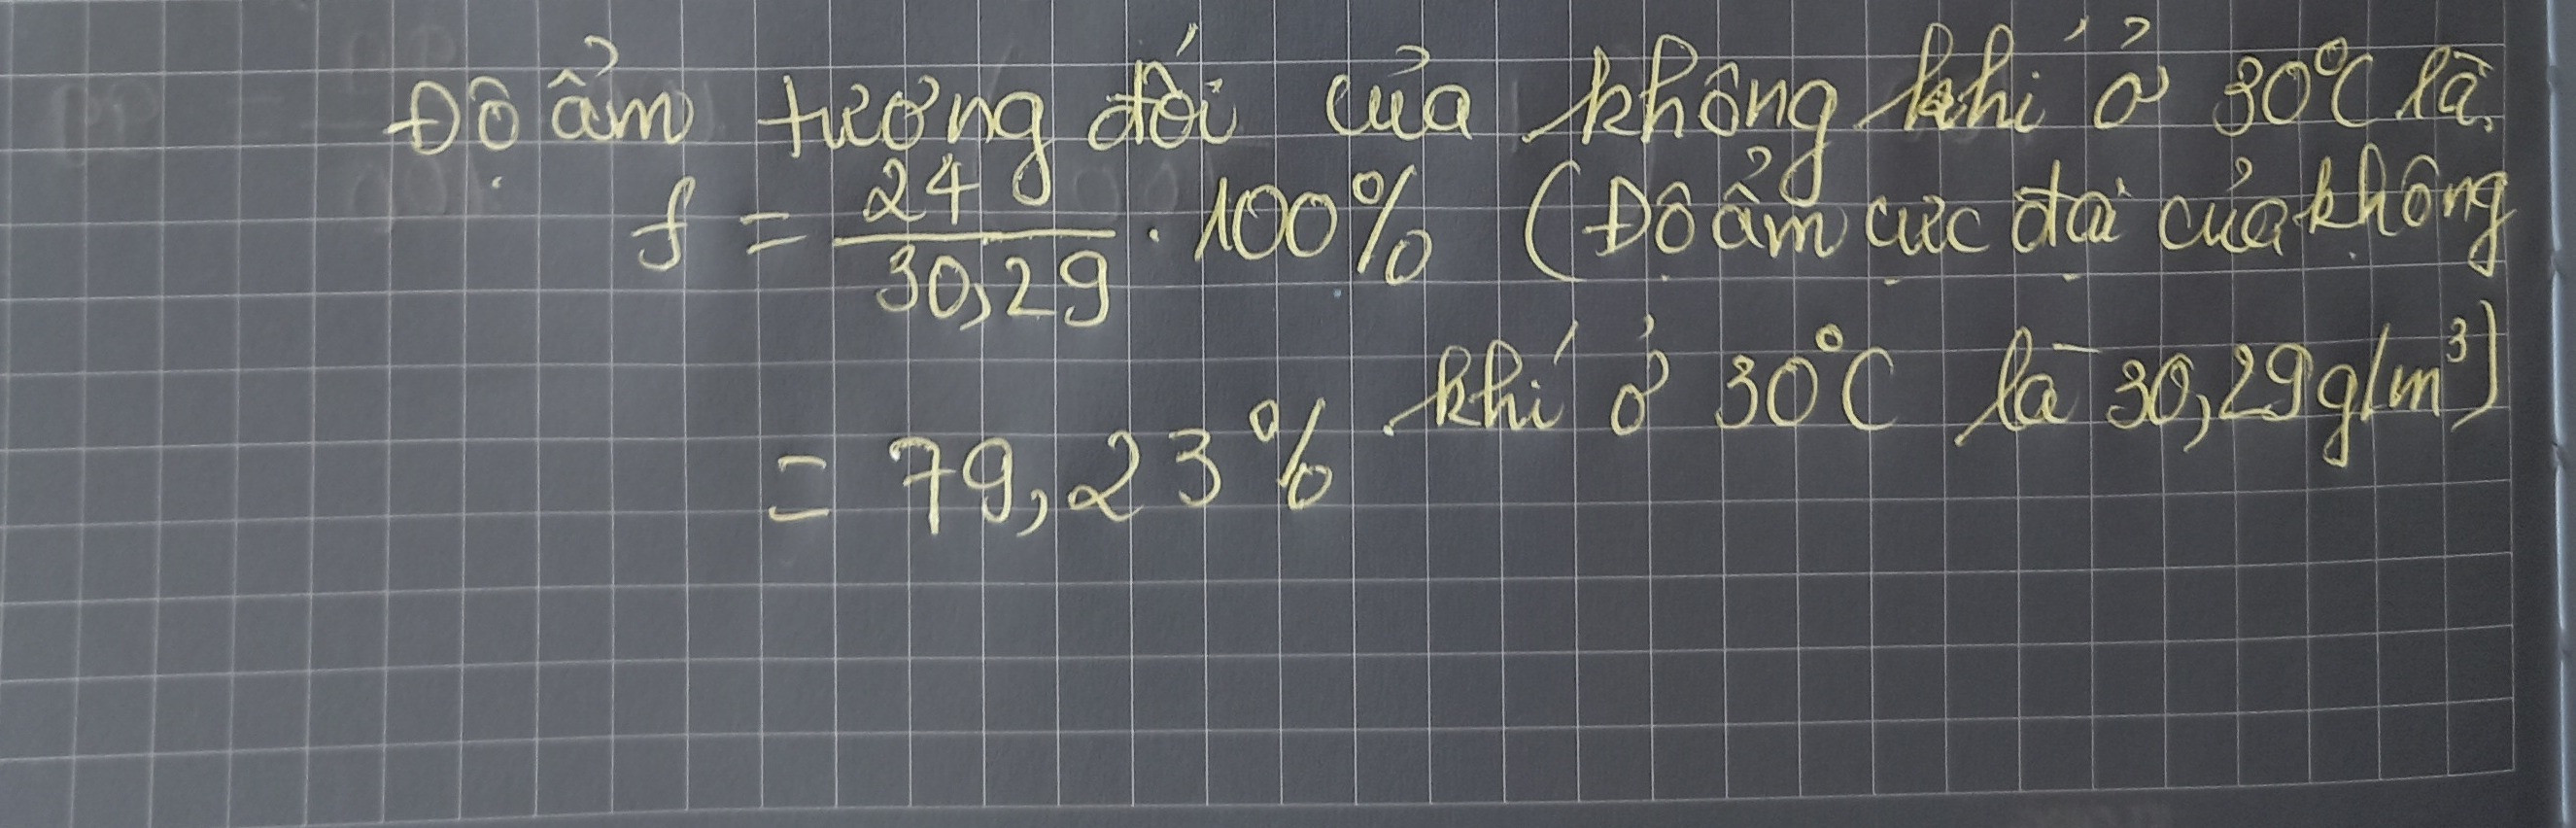 Độ ẩm tương đối của không khí ở 30°C là
f = 24/30,29 . 100% (Độ ẩm cực đại của không
khí ở 30°C là 30,29g/m³)
= 79,23%